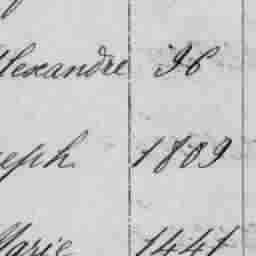 Alexandre 96
seph 1809
Marie 1441